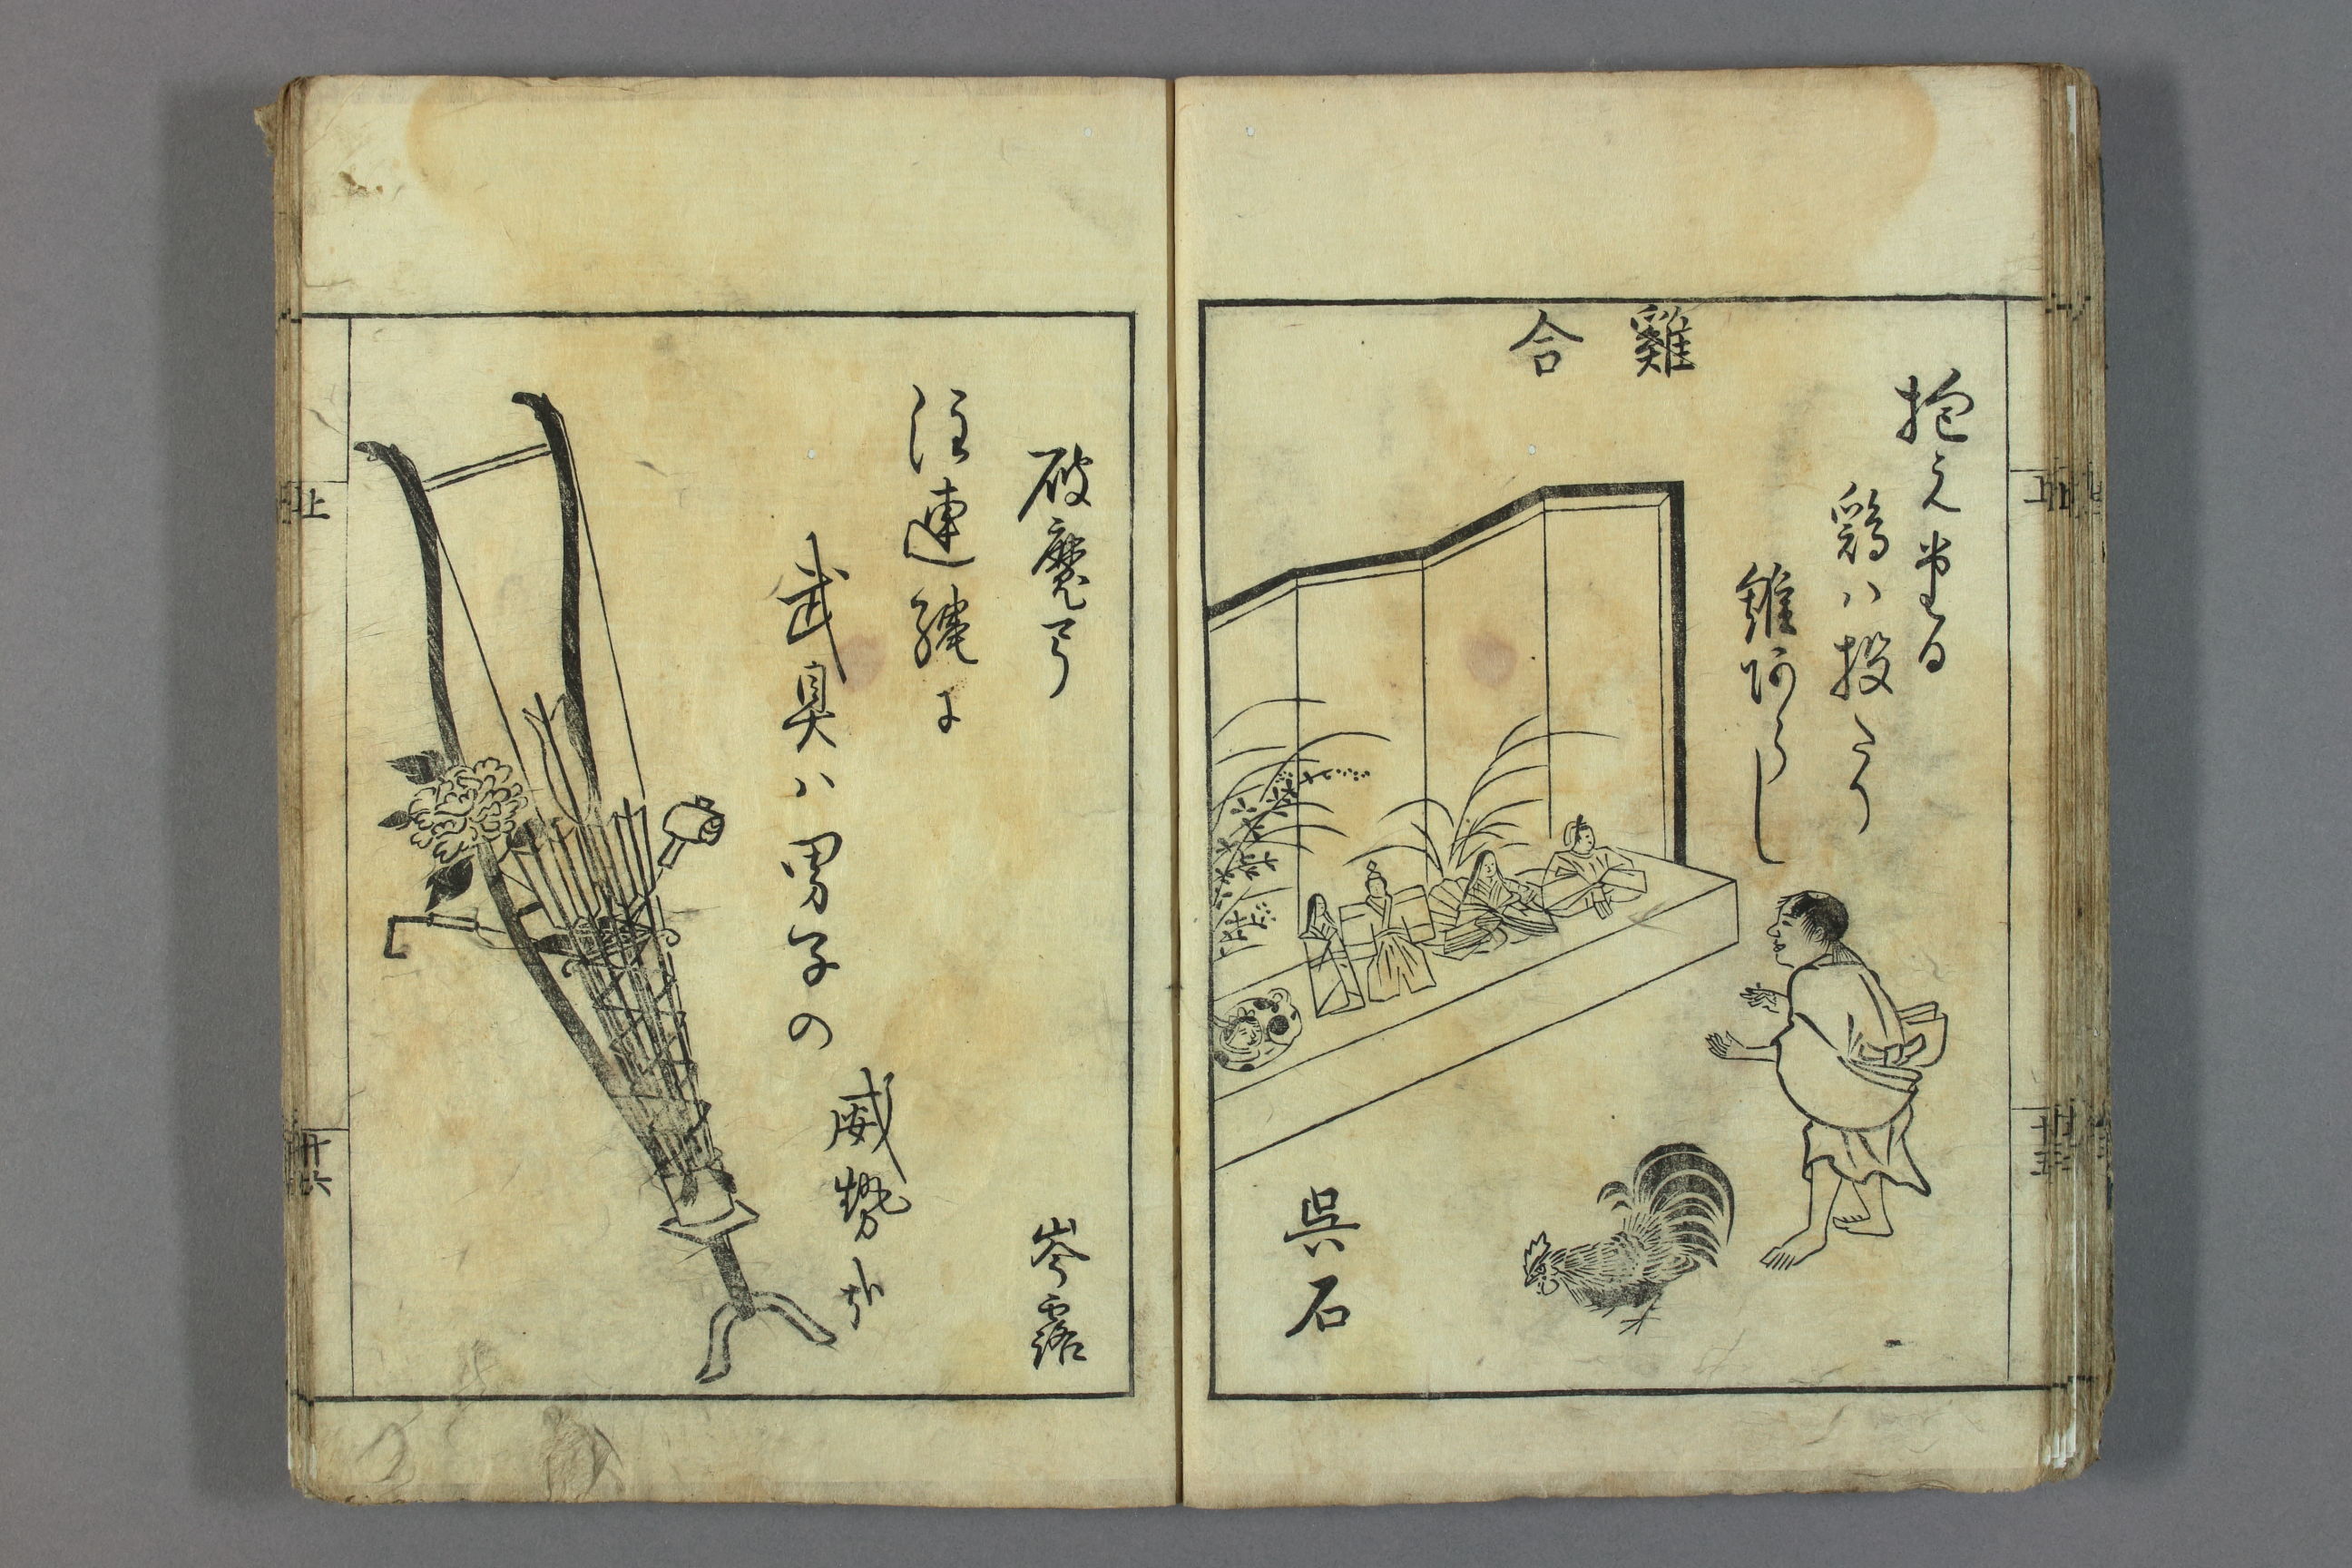 雞合
抱え出る
鶏ハ投たり
雛阿らし
呉石
破魔弓
注連縄に
武具ハ男子の
威勢か
岑露
上
廿六